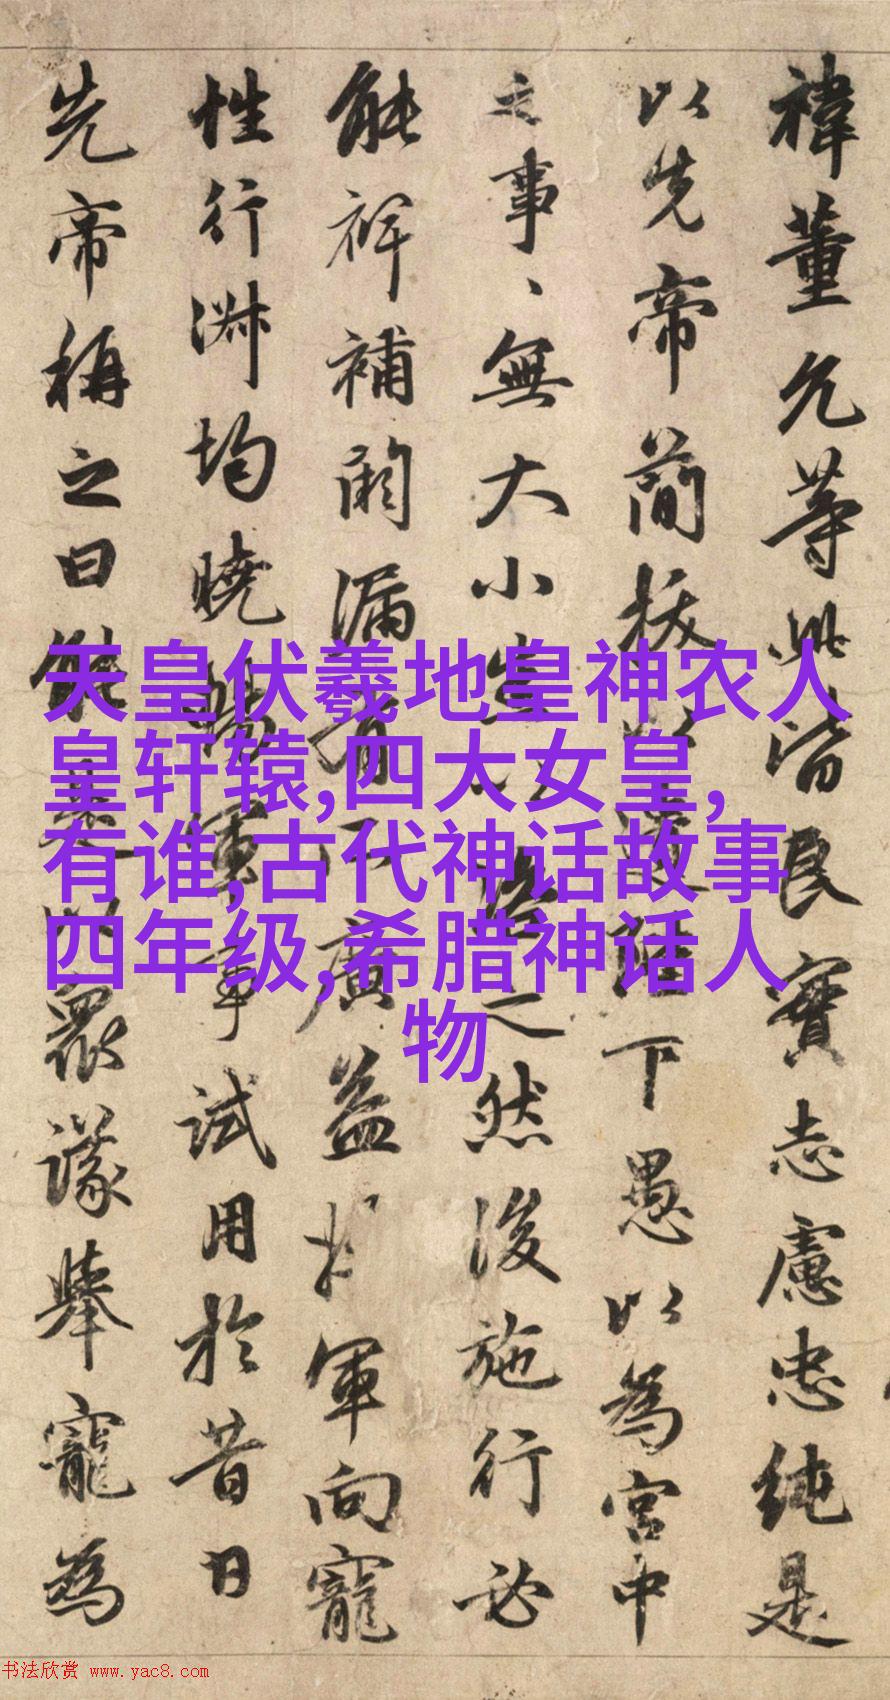 禕董允等此皆良實志慮忠純是
以先帝簡拔以遺陛下愚以為宮中
之事、無大小悉以咨之然後施行必
能裨補闕漏有所廣益將軍向寵
性行淑均曉暢軍事試用於昔日
先帝稱之曰能是以眾議舉寵為
天皇伏羲地皇神农人
皇轩辕,四大女皇,
有谁,古代神话故事
四年级,希腊神话人
物
书法欣赏 www.yac8.com